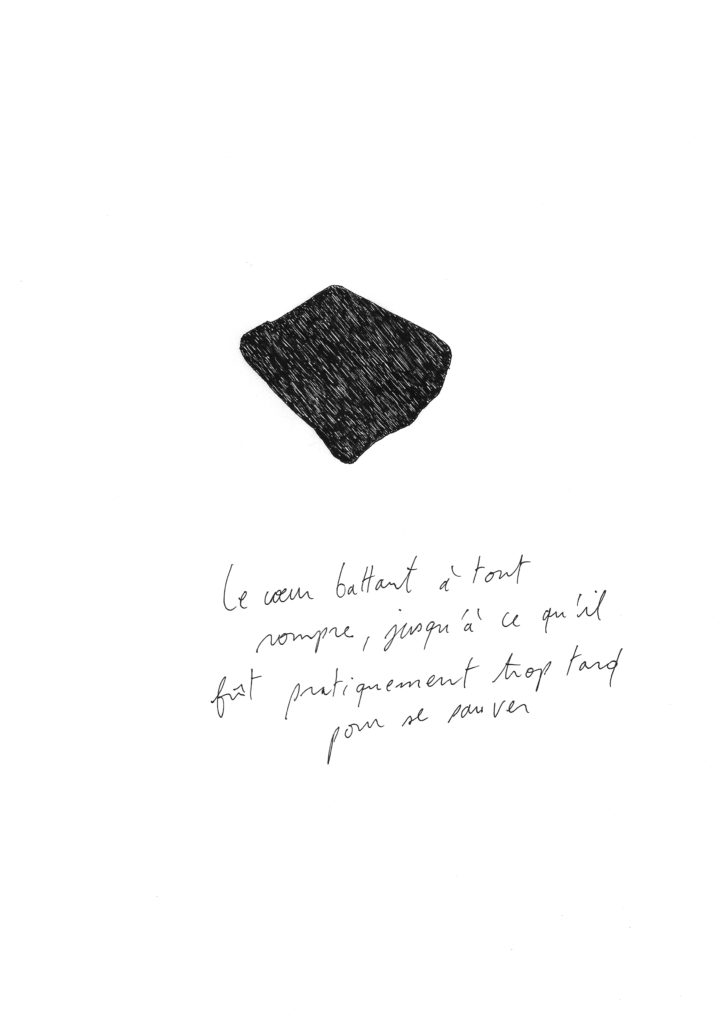 Le cœur battant à tout
rompre, jusqu'à ce qu'il
fût pratiquement trop tard
pour se sauver